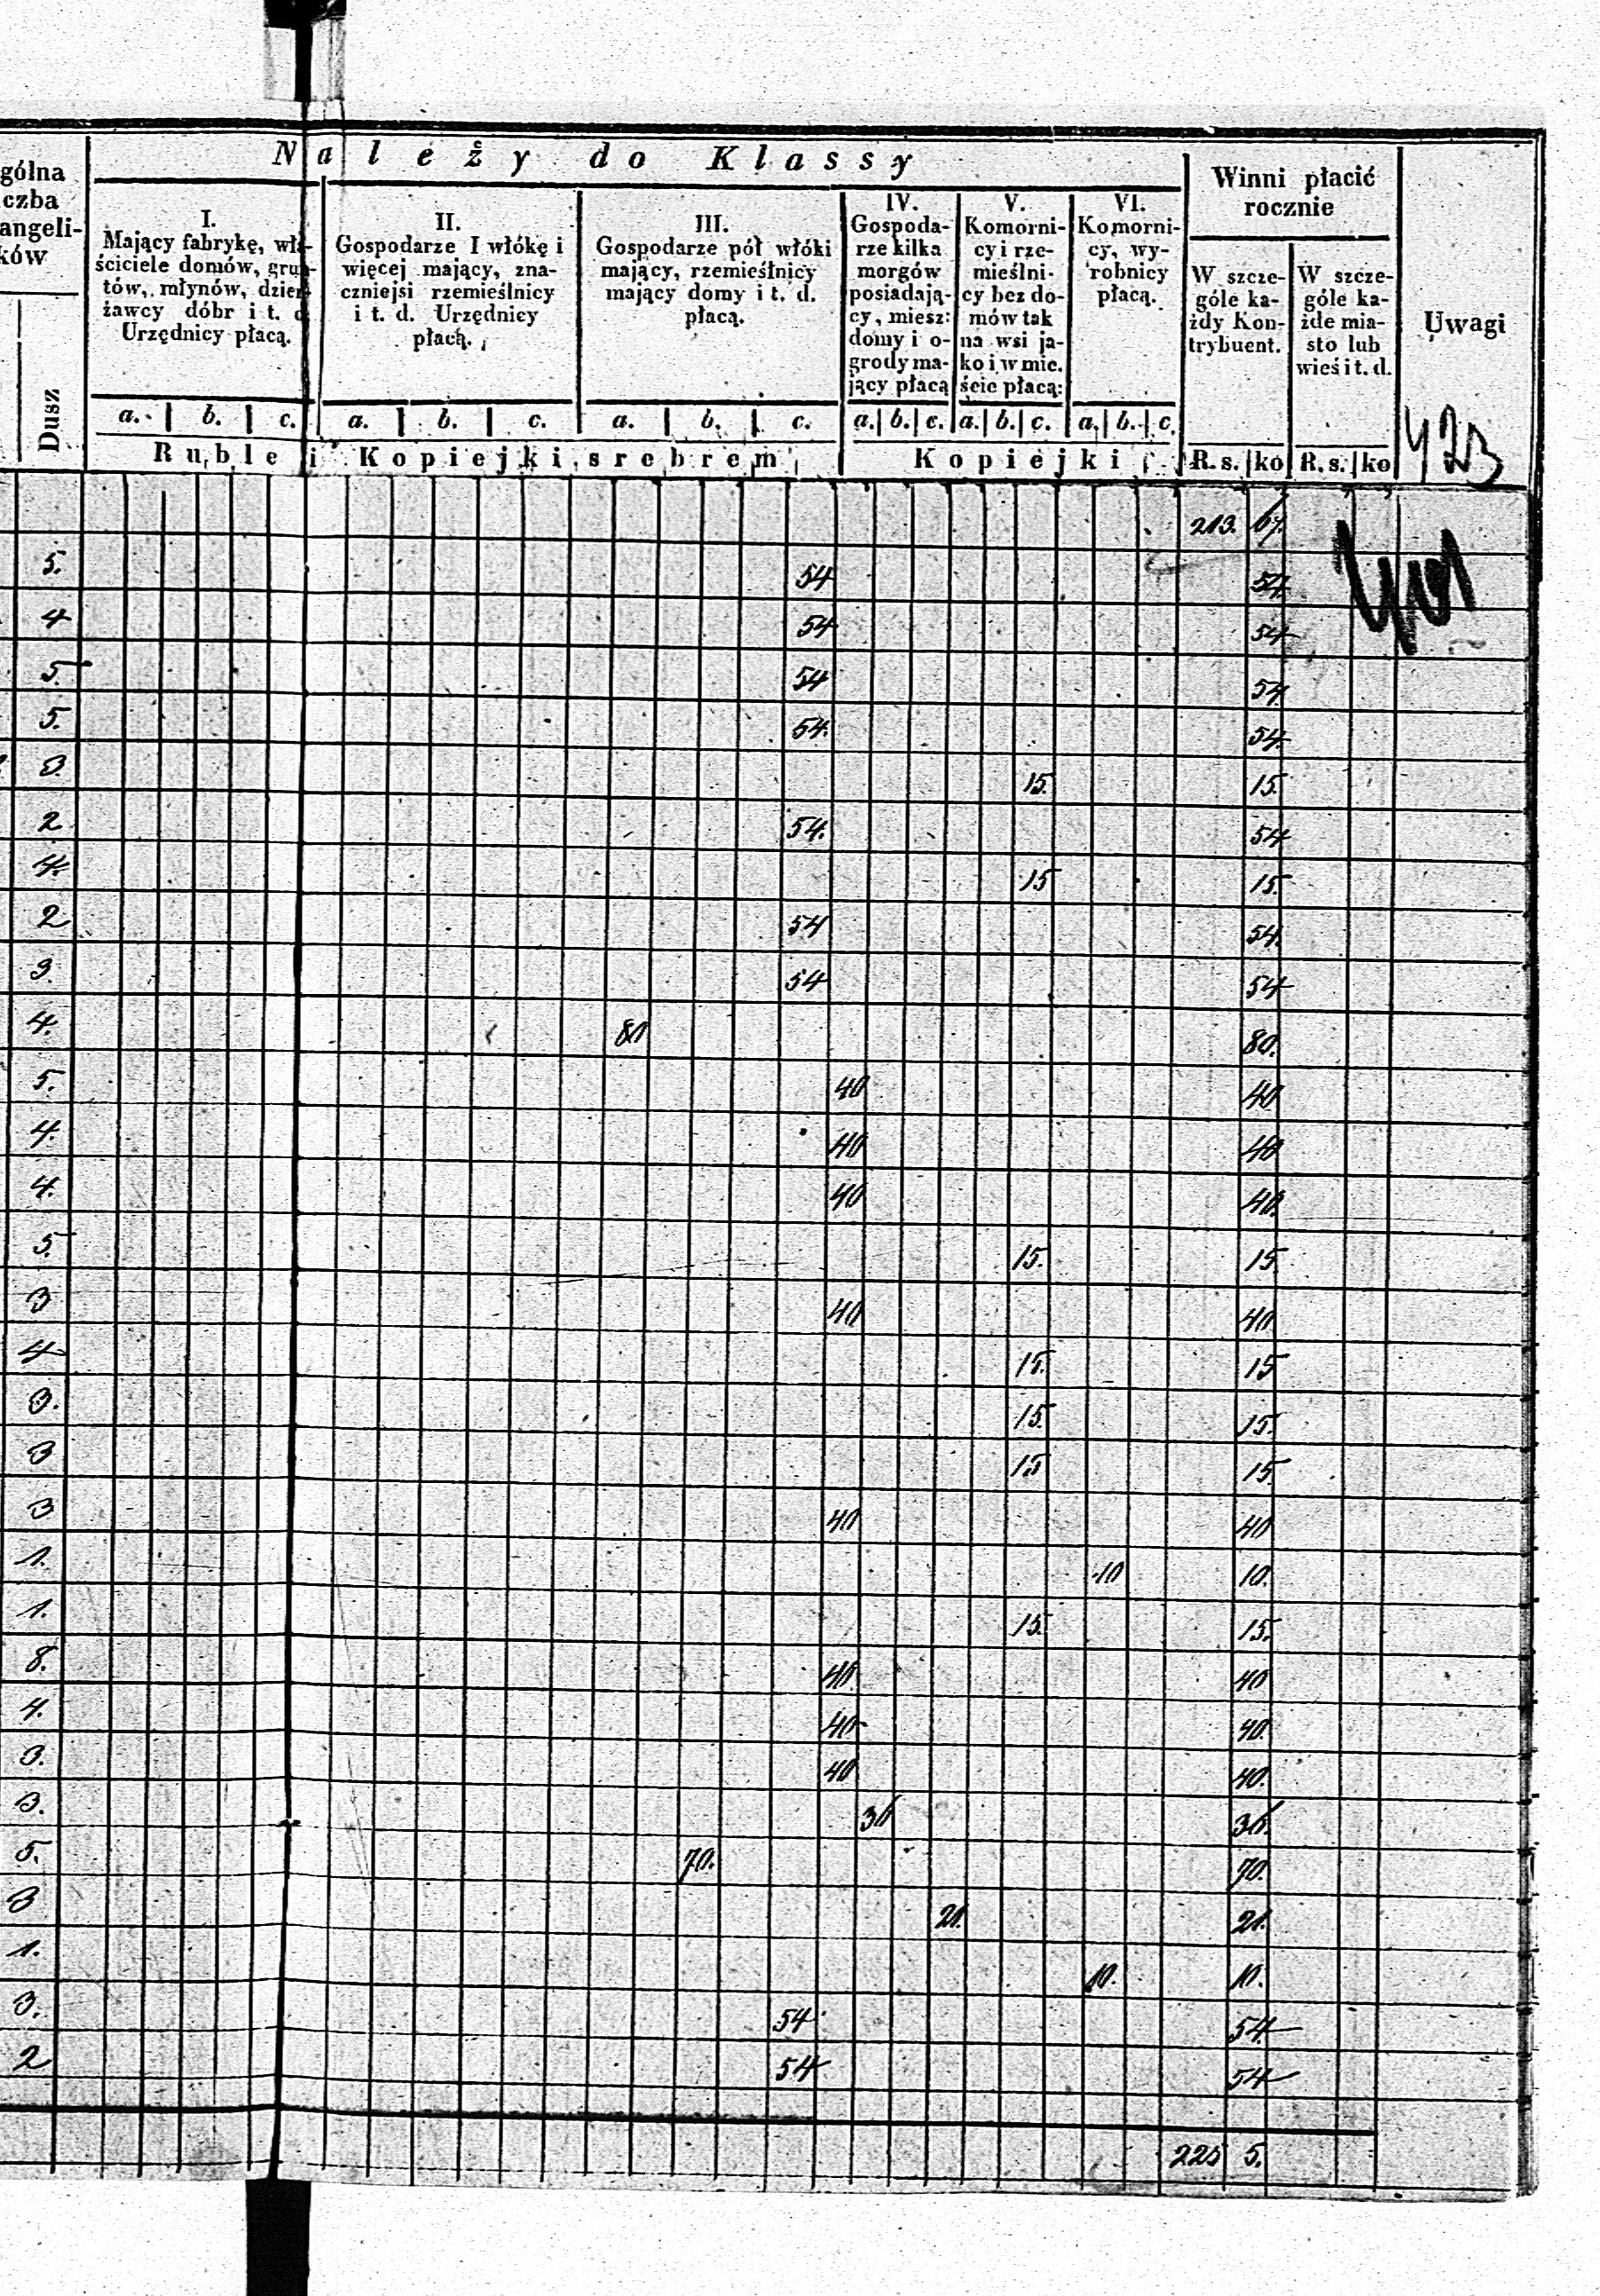 Należy do Klassy
gólna
czba
angeli-
ków
Dusz
I.
Mający fabrykę, wła-
ściciele domów, grun-
tów, młynów, dzier-
żawcy dóbr i t. d.
Urzędnicy płacą.
II.
Gospodarze I włókę i
więcej mający, zna-
czniejsi rzemieślnicy
i t. d. Urzędnicy
płacą.
III.
Gospodarze pół włóki
mający, rzemieślnicy
mający domy i t. d.
płacą.
IV.
Gospoda-
rze kilka
morgów
posiadają-
cy, miesz:
domy i o-
grody ma-
jący płacą
V.
Komorni-
cy i rze-
mieślni-
cy bez do-
mów tak
na wsi ja-
ko i w mie.
ście płacą:
VI.
Komorni-
cy, wy-
robnicy
płacą.
Winni płacić
rocznie
W szcze-
góle ka-
żdy Kon-
trybuent.
W szcze-
góle ka-
żde mia-
sto lub
wieś i t. d.
Uwagi
423
a. b. c. a. b. c. a. b. c. a. b. c. a. b. c. a. b. c.
Ruble i Kopiejki srebrem Kopiejki R. s. ko R. s. ko
213. 67.
5. 54 54
4 54 54
5. 54 54
5. 54. 54.
3. 15. 15.
2 54. 54
4. 15 15.
2 54 54.
3. 54 54
4. 80 80.
5. 40 40
4. 40 40
4. 40 40.
5. 15. 15
3 40 40
4 15. 15
3. 15. 15.
3 15 15
3 40 40
1. 10 10.
1. 15. 15.
8. 40. 40
4. 40 40.
3. 40 40.
3. 36 36.
5. 70. 70.
3 21. 21.
1. 10. 10.
3. 54 54.
2 54 54
225 5.